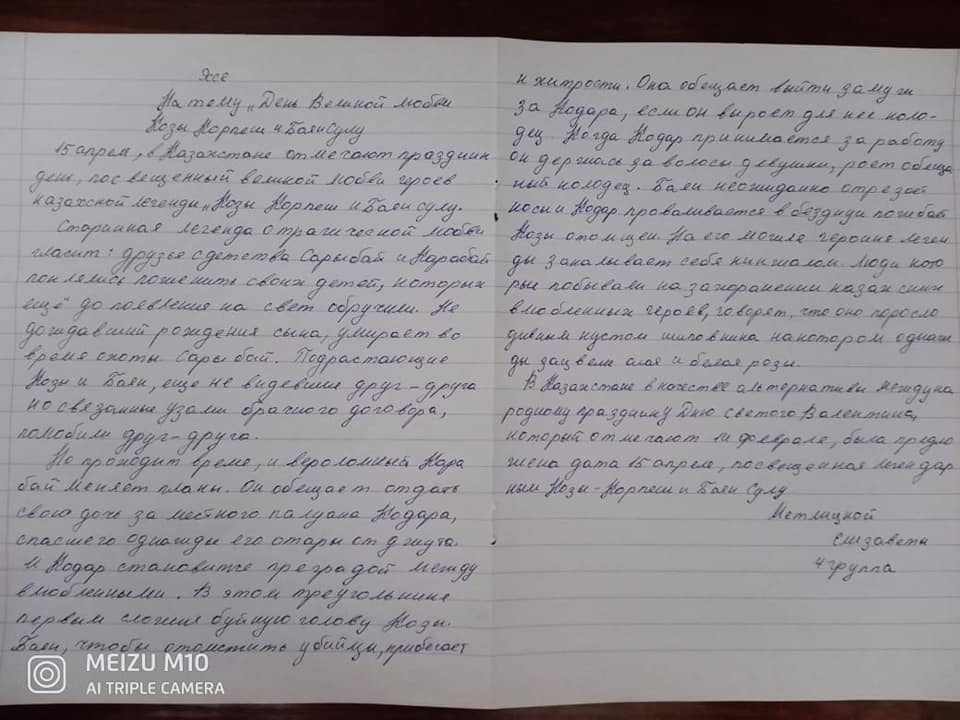 Эссе
На тему „День Великой любви
Козы Корпеш и Баян Сулу
15 апреля, в Казахстане отмечают праздник
день, посвещенный великой любви героев
казахской легенды „Козы Корпеш и Баян сулу.
Старинная легенда о трагической любви
гласит: друзья с детства Сарыбай и Карабай
поклялись поженить своих детей, которых
ещё до поевления на свет обручили. Не
дождавший рождения сына, умирает во
время охоты Сары бай. Подрастающие
Козы и Баян, еще не видевшие друг-друга
но связанные узами брачного договора,
полюбили друг-друга.
Но проходит време, и вероломный Кара
бай меняет планы. Он обещает отдать
свою доч за местного палуана Кодара,
спасшего однажды его отары от джута.
И Кодар становитже преградой между
влюбленными. В этом треугольнике
первым сложил буйную голову Козы.
Баян, чтобы отомстить убийцы, прибегает
к хитрости. Она обещает выйти замуж
за Кодара, если он выроет для нее коло-
дец. Когда Кодар принимается за работу
он держась за волосы девушки, роет обеща
ный колодец. Баян неожиданно отрезает
косы и Кодар проваливается в бездну и погибай
Козы отомщен. На его могиле героине леген
ды закалывает себя кинжалом. Люди кото
рые побывали на захоронении казахских
влюбленных героев, говорят, что оно поросло
дивным кустом шиповника на котором однаж
ды зацвели алая и белая розы.
В Казахстане в качестве альтернативы междуна
родному празднику Дню светого Валентина,
который отмечают 14 феврале, была предло
жена дата 15 апреля, посвещенная легендар
ным Козы-Корпеш и Баян Сулу
Метлицкой
Елизаветы
4 группа
MEIZU M10
AI TRIPLE CAMERA